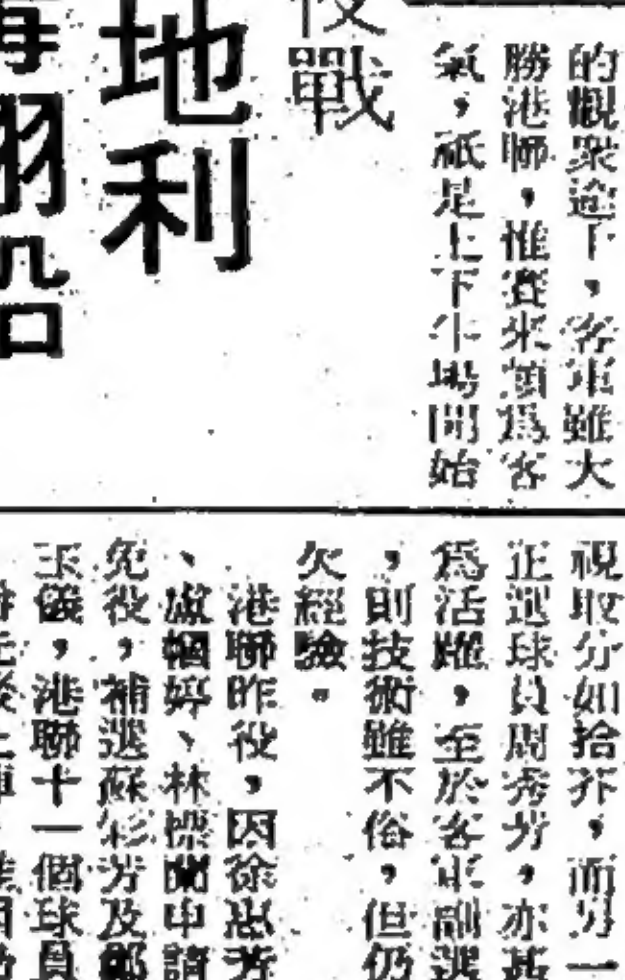 的觀衆逾千，客軍雖大
勝港聯，惟賽來頗爲客
氣，祇是上下半場開始
役戰
地利
翻船
視取分如拾芥，而另一
正選球員周秀芳，亦甚
爲活躍，至於客軍副選
，則技術雖不俗，但仍
欠經驗。
港聯昨役，因徐思芳
、盧幗婷、林標蘭申請
免役，補選蘇杉芳及鄭
玉儀，港聯十一個球員